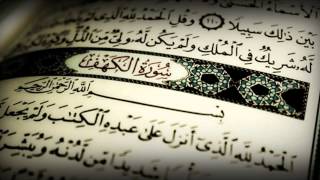 الْأَسْمَاءُ الْحُسْنَىٰ
بَيْنَ ذَٰلِكَ سَبِيلًا ١١٠ وَقُلِ الْحَمْدُ لِلَّهِ
لَّهُ شَرِيكٌ فِي الْمُلْكِ وَلَمْ يَكُن لَّهُ وَلِيٌّ مِّنَ
سُورَةُ الْكَهْفِ
بِسْمِ اللَّهِ الرَّحْمَٰنِ الرَّحِيمِ
الْحَمْدُ لِلَّهِ الَّذِي أَنزَلَ عَلَىٰ عَبْدِهِ الْكِتَٰبَ وَلَمْ يَجْعَل
شَدِيدًا مِّن لَّدُنْهُ وَيُبَشِّرَ